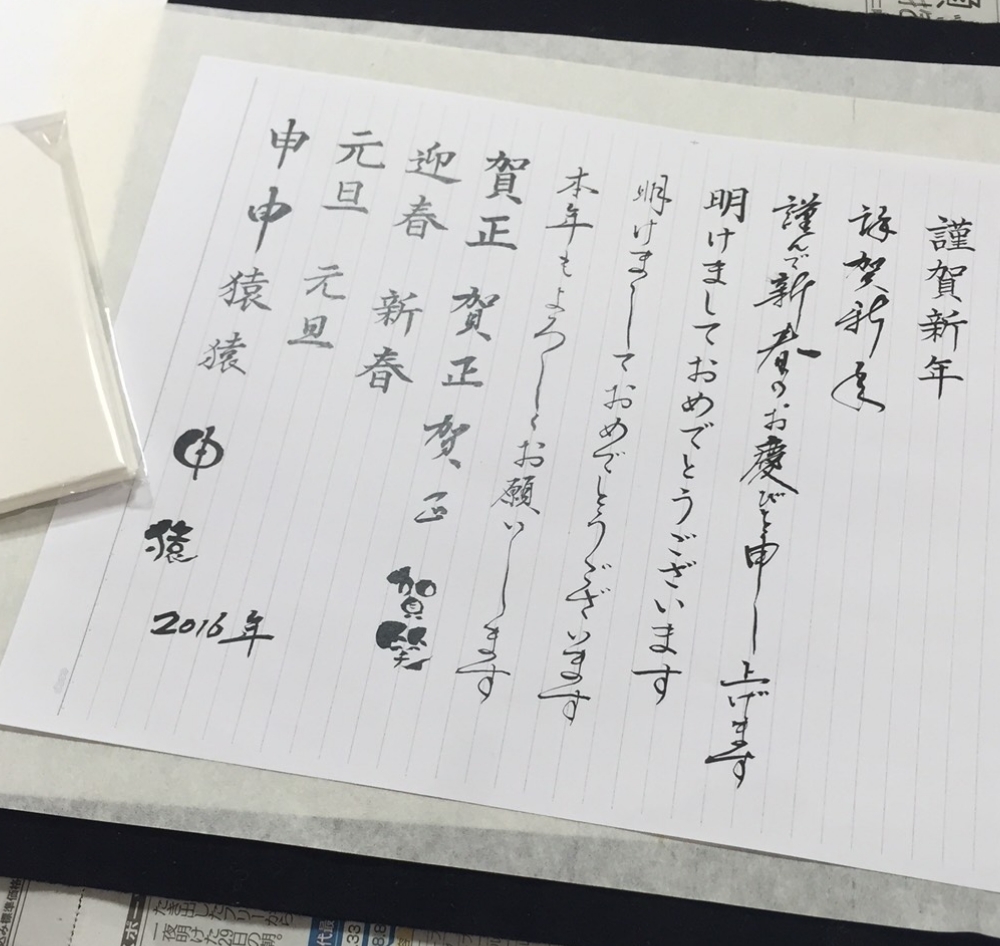 謹賀新年
謹賀新年
謹んで新春のお慶びを申し上げます
明けましておめでとうございます
明けましておめでとうございます
本年もよろしくお願いします
賀正 賀正 賀正 賀笑
迎春 新春
元旦 元旦
申 申 猿 猿 申 猿
2016年